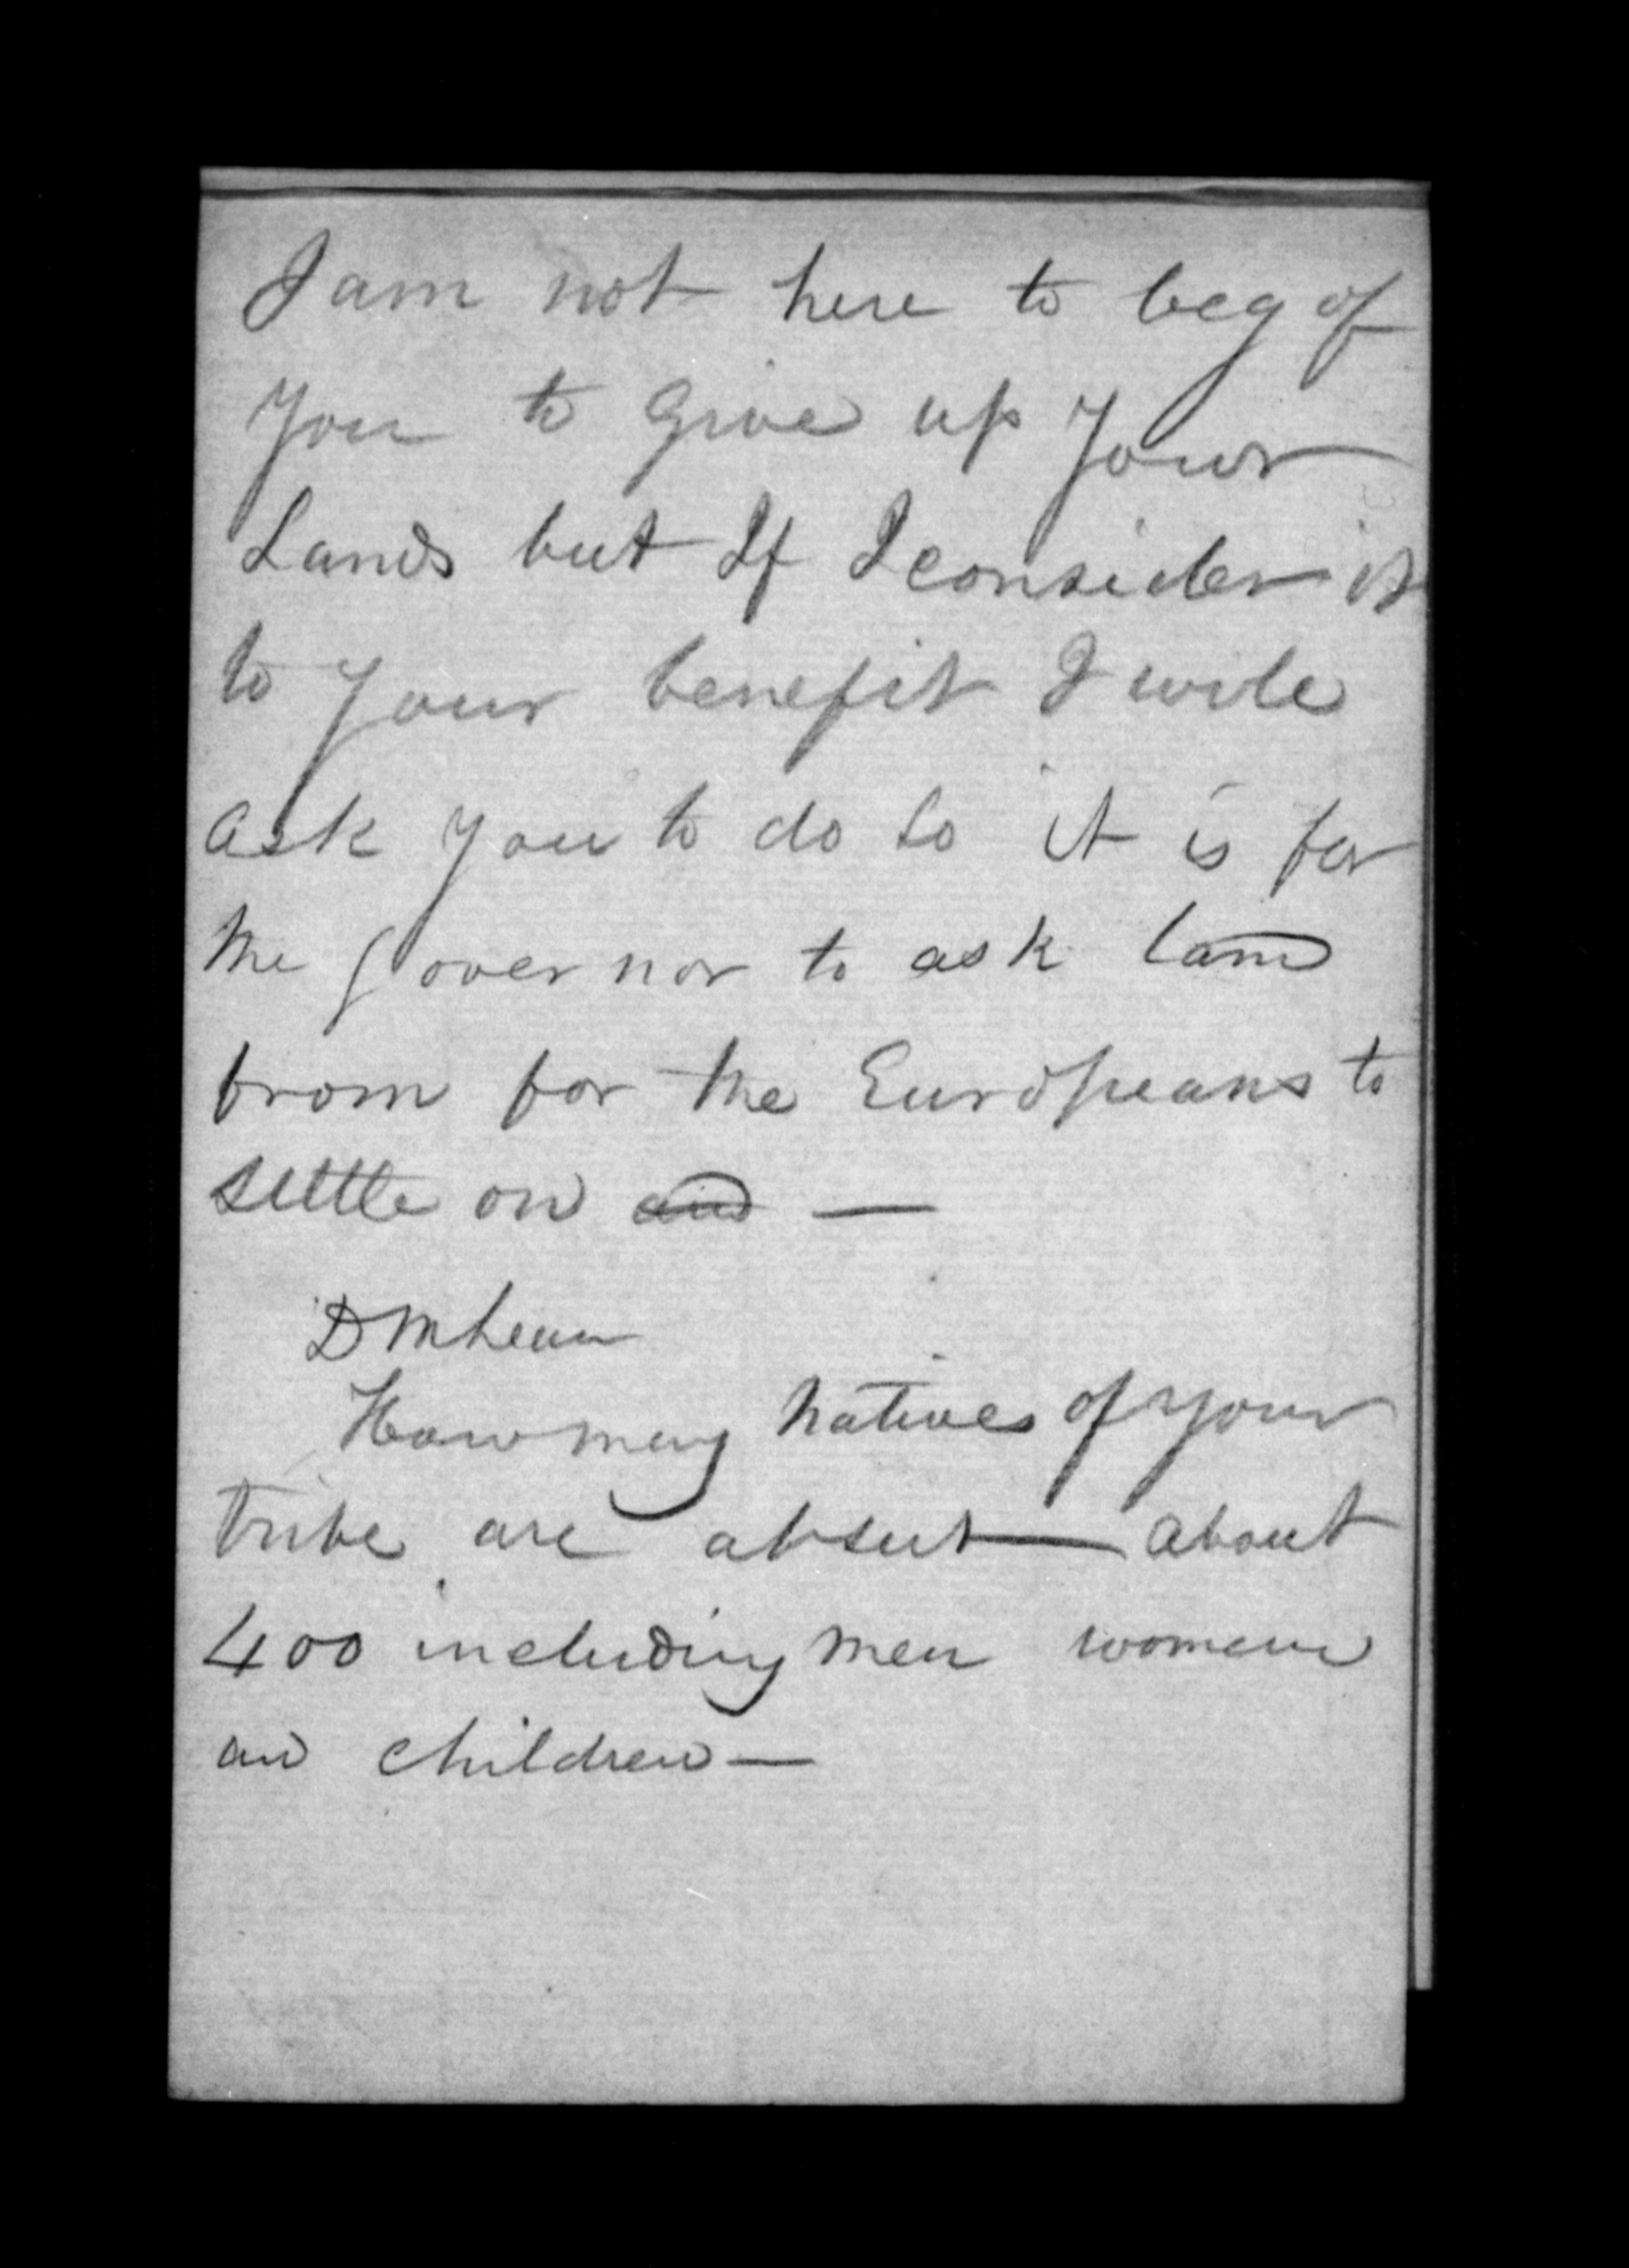 I am not here to beg of
you to give up your
Lands but If I consider it
to your benefit I will
ask you to do so it is for
the Governor to ask land
from for the Europeans to
settle on ~~and~~ —
D McLean
How many Natives of your
tribe are absent — about
400 including men women
and children —